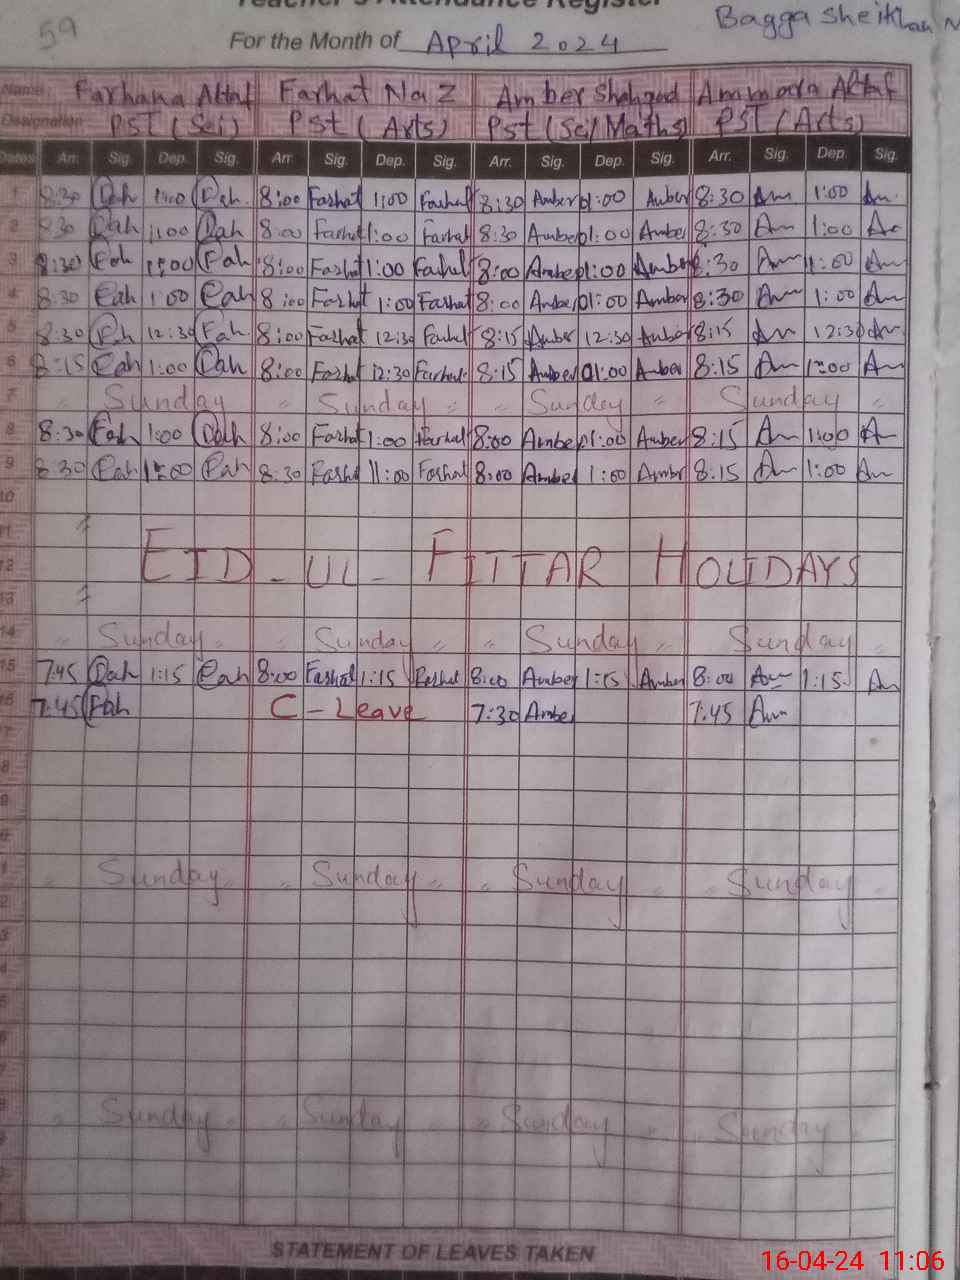 Teacher's Attendance Register
59
Bagga Sheikhan
For the Month of April 2024
Name: Farhana Altaf Farhat Naz Amber Shahzad Ammara Altaf
Designation PST (Sci) PSt (Arts) PSt (Sci/Maths) PST (Arts)
Dates Arr. Sig. Dep. Sig. Arr. Sig. Dep. Sig. Arr. Sig. Dep. Sig. Arr. Sig. Dep. Sig.
1 8:30 1:00 8:00 Farhat 1:00 Farhat 8:30 Amber 01:00 Amber 8:30 Am 1:00 Am
2 8:30 1:00 8:00 Farhat 1:00 Farhat 8:30 Amber 01:00 Amber 8:30 Am 1:00 Am
3 8:30 1:00 8:00 Farhat 1:00 Farhat 8:00 Amber 01:00 Amber 8:30 Am 1:00 Am
4 8:30 1:00 8:00 Farhat 1:00 Farhat 8:00 Amber 01:00 Amber 8:30 Am 1:00 Am
5 8:30 12:30 8:00 Farhat 12:30 Farhat 8:15 Amber 12:30 Amber 8:15 Am 12:30 Am
6 8:15 1:00 8:00 Farhat 12:30 Farhat 8:15 Amber 01:00 Amber 8:15 Am 1:00 Am
7 " Sunday " Sunday " " Sunday " Sunday "
8 8:30 1:00 8:00 Farhat 1:00 Farhat 8:00 Amber 01:00 Amber 8:15 Am 1:00 Am
9 8:30 1:00 8:30 Farhat 11:00 Farhat 8:00 Amber 1:00 Amber 8:15 Am 1:00 Am
10
11
12 EID - UL - FITTAR HOLIDAYS
13
14 " Sunday " " Sunday " " Sunday " " Sunday "
15 7:45 1:15 8:00 Farhat 1:15 Farhat 8:00 Amber 1:15 Amber 8:00 Am 1:15 Am
16 7:45 C-Leave 7:30 Amber 7:45 Am
17
8
9
" Sunday " " Sunday " " Sunday " " Sunday "
2
3
4
5
6
7
" Sunday " " Sunday " " Sunday " " Sunday "
STATEMENT OF LEAVES TAKEN
16-04-24 11:06